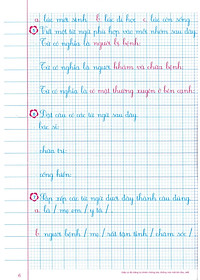 a. lúc mới sinh b. lúc đi học c. lúc còn sống
Viết một từ ngữ phù hợp với mỗi nhóm sau đây
Từ có nghĩa là người bị bệnh:
Từ có nghĩa là người khám và chữa bệnh:
Từ có nghĩa là có mặt thường xuyên ở bên cạnh:
Đặt câu có các từ sau đây:
bác sĩ:
chữa trị:
cống hiến:
Sắp xếp các từ ngữ dưới đây thành câu đúng.
a. là / mẹ em / y tá / .
b. người bệnh / mẹ / rất tận tình / chăm sóc / .
6